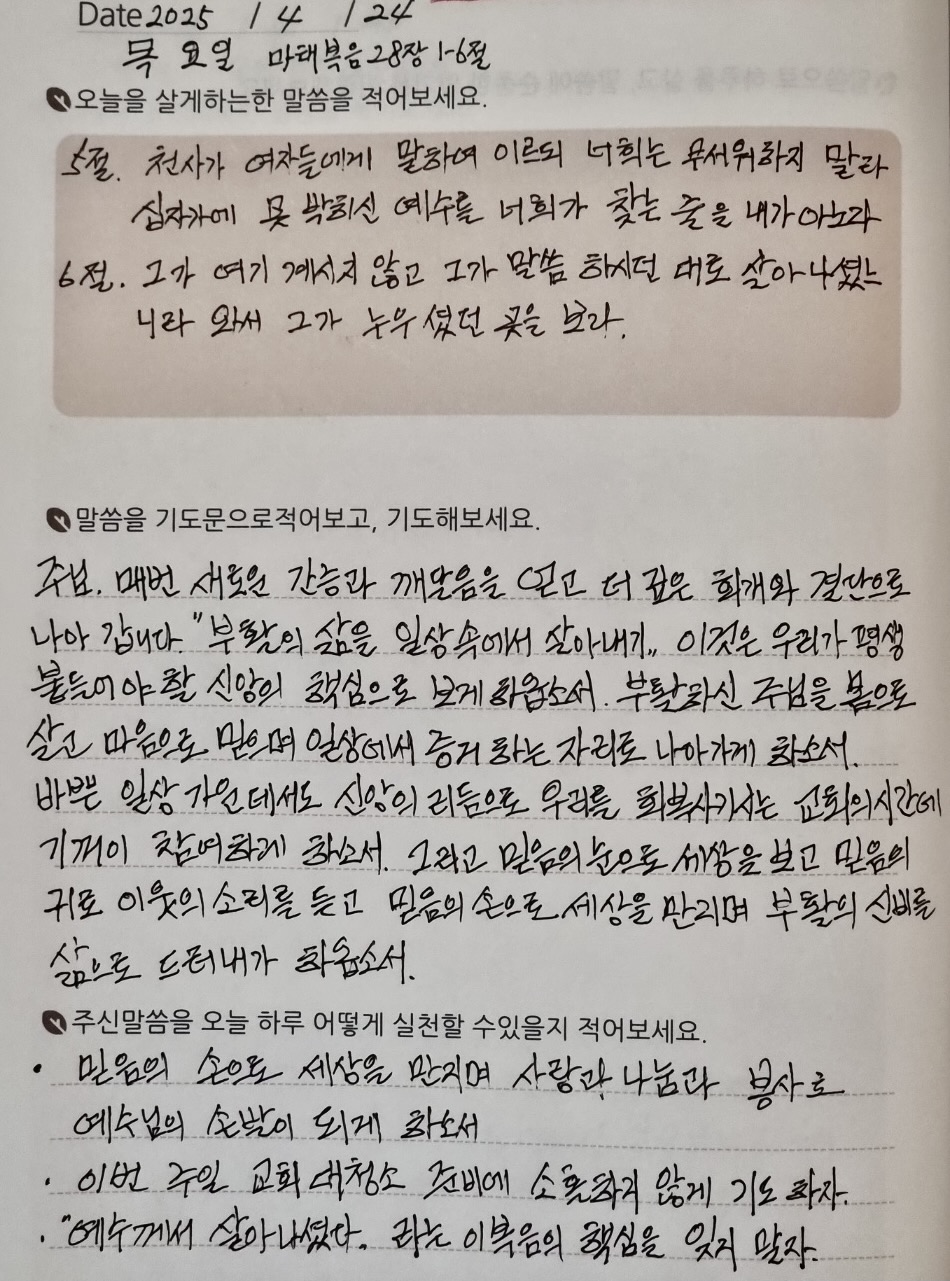 Date 2025 / 4 / 24
목요일 마태복음 28장 1-6절
오늘을 살게하는한 말씀을 적어보세요.
5절. 천사가 여자들에게 말하여 이르되 너희는 무서워하지 말라
십자가에 못 박히신 예수를 너희가 찾는 줄을 내가 아노라
6절. 그가 여기 계시지 않고 그가 말씀 하시던 대로 살아 나셨느
니라 와서 그가 누우셨던 곳을 보라.
말씀을 기도문으로적어보고, 기도해보세요.
주님. 매번 새로운 간증과 깨달음을 얻고 더 깊은 회개와 결단으로
나아 갑니다. "부활의 삶을 일상속에서 살아내기" 이것은 우리가 평생
붙들어야 할 신앙의 핵심으로 보게 하옵소서. 부활하신 주님을 몸으로
살고 마음으로 믿으며 일상에서 증거 하는 자리로 나아가게 하소서.
바쁜 일상 가운데서도 신앙의 리듬으로 우리를 회복시키시는 교회의시간에
기꺼이 참여하게 하소서. 그리고 믿음의 눈으로 세상을 보고 믿음의
귀로 이웃의 소리를 듣고 믿음의 손으로 세상을 만지며 부활의 신비를
삶으로 드러내가 하옵소서.
주신말씀을 오늘 하루 어떻게 실천할 수있을지 적어보세요.
· 믿음의 손으로 세상을 만지며 사랑과 나눔과 봉사로
예수님의 손발이 되게 하소서
· 이번 주일 교회 대청소 준비에 소홀하지 않게 기도 하자.
· "예수께서 살아나셨다" 라는 이복음의 핵심을 잊지 말자.